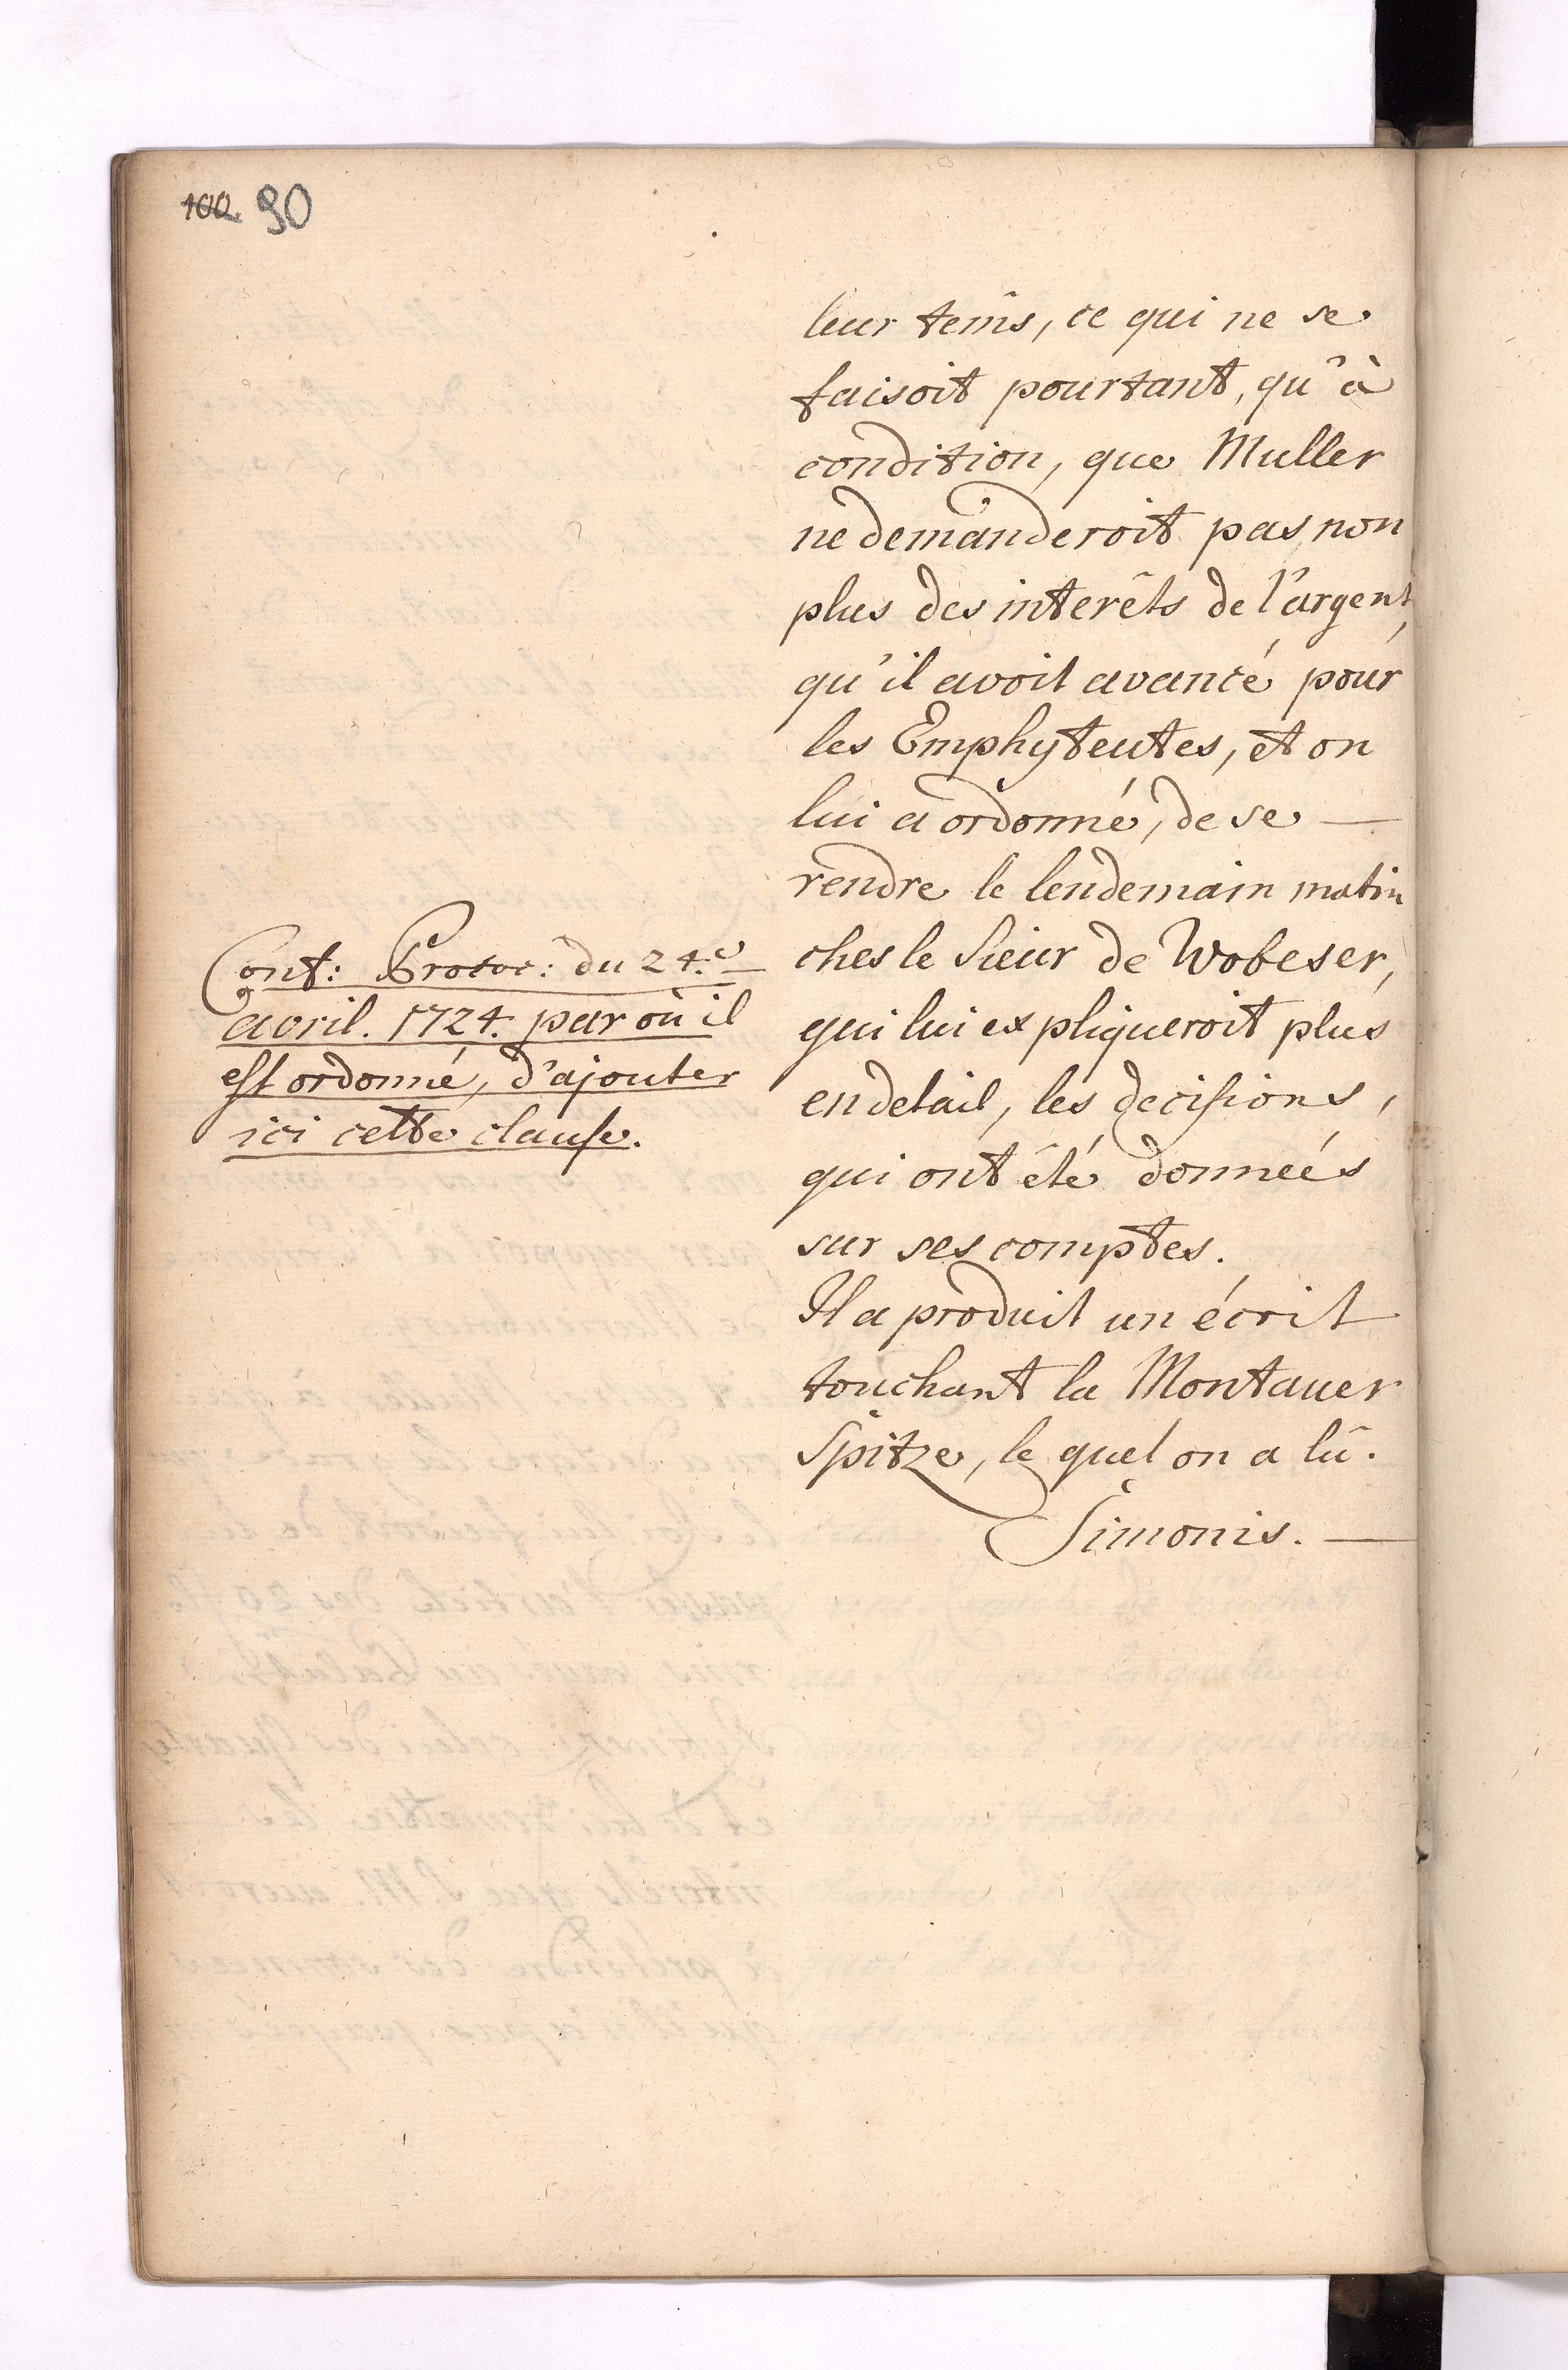 100. 90
leur tems, ce qui ne se
faisoit pourtant, qu'à
condition, que Muller
ne demanderoit pas non
plus des interêts de l'argent,
qu'il avoit avancé pour
les Emphyteutes, et on
lui a ordonné, de se —
rendre le lendemain matin
ches le Sieur de Wobeser,
qui lui expliqueroit plus
en detail, les decisions,
qui ont été donneés
sur ses comptes.
Il a produit un écrit
touchant la Montauer
Spitze, le quel on a lû.
Simonis. —
Conf: Protoc: du 24.e —
avril. 1724. par où il
est ordonné, d'ajouter
ici cette clause.